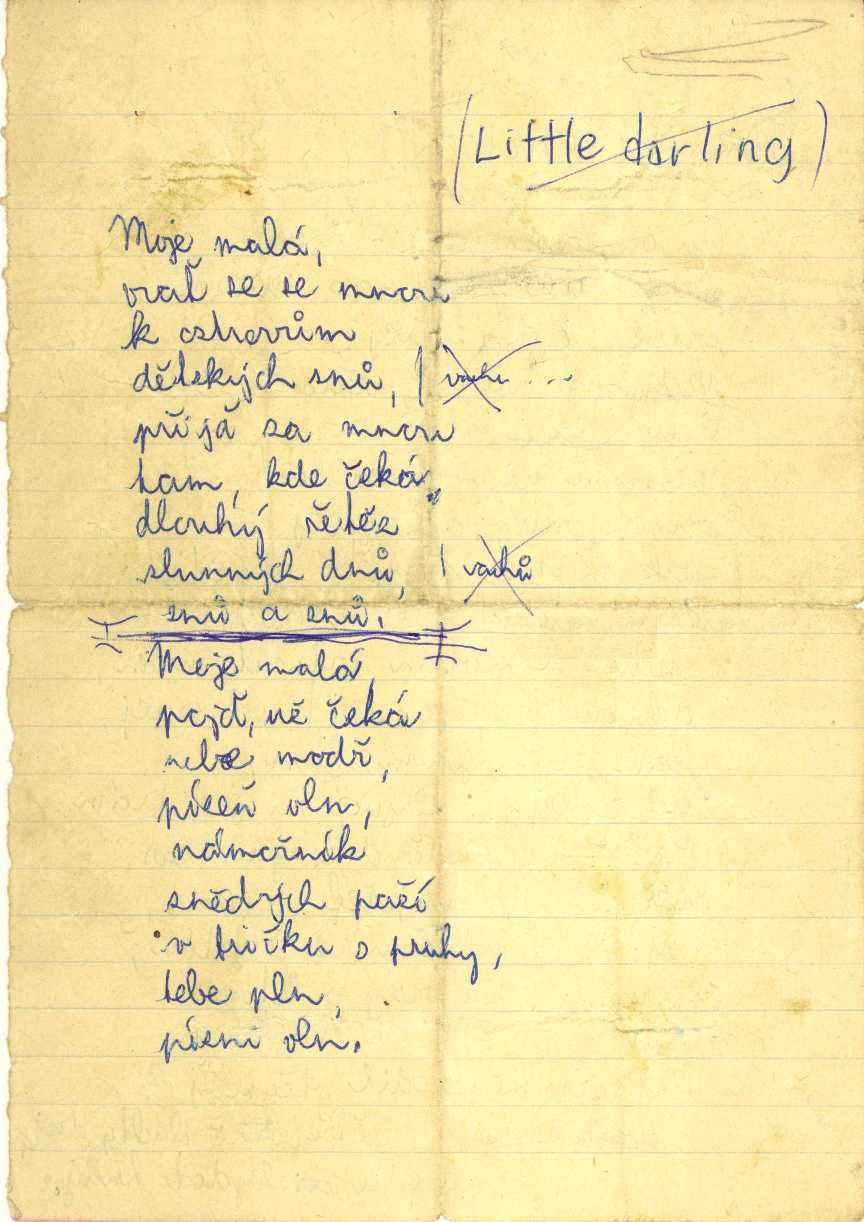 (Little darling)
Moje malá,
vrať se se mnou
k ostrovům
dětských snů,
přijď za mnou
tam, kde čeká,
dlouhý řetěz
slunných dnů,
snů a snů.
Moje malá,
pojď, už čeká
nebe modř,
píseň vln,
námořník
snědých paží
v tričku s pruhy,
tebe pln,
písni vln.